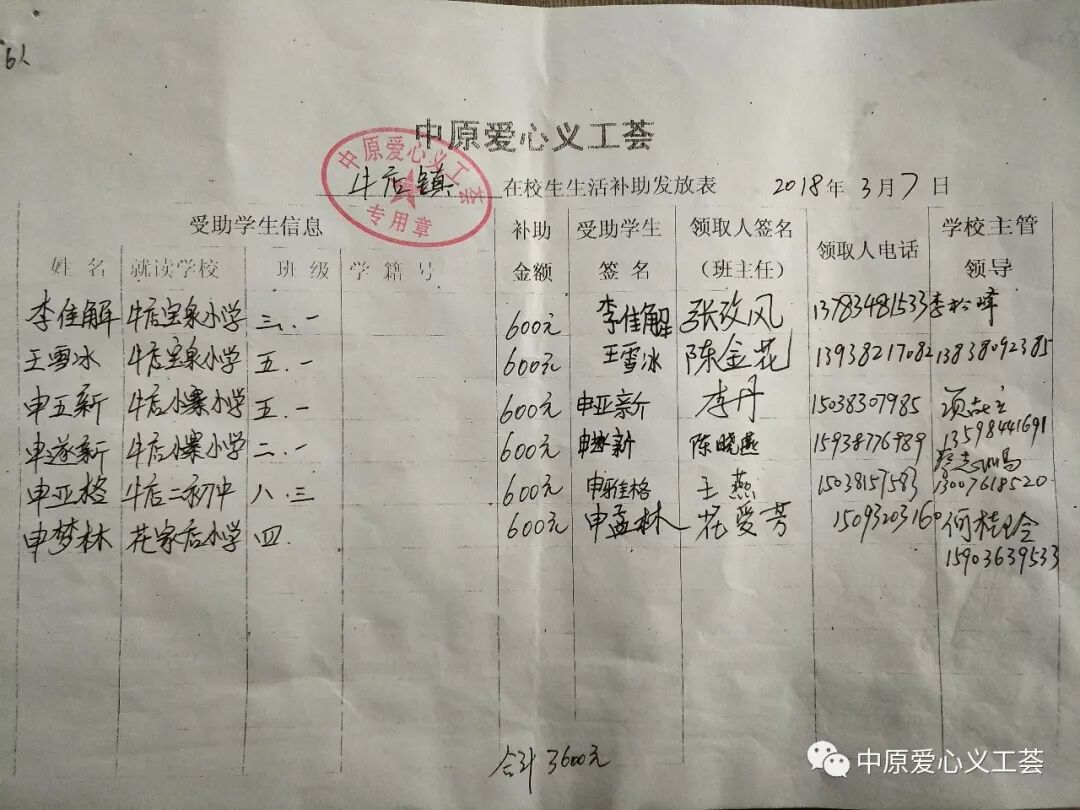 6人
中原爱心义工荟
中原爱心义工荟
专用章
牛店镇 在校生生活补助发放表 2018年3月7日
受助学生信息 补助金额 受助学生签名 领取人签名（班主任） 领取人电话 学校主管领导
姓名 就读学校 班级 学籍号
李佳解 牛店宝泉小学 三.一 600元 李佳解 张改风 13783481533 李松峰
王雪冰 牛店宝泉小学 五.一 600元 王雪冰 陈金花 13938217082 13838092385
申亚新 牛店小寨小学 五.一 600元 申亚新 李丹 15038307985
申遂新 牛店小寨小学 二.一 600元 申遂新 陈晓燕 15938776989 13598441691
申亚格 牛店二初中 八.三 600元 申雅格 王燕 15038157583 13007618520
申梦林 花家店小学 四. 600元 申孟林 花爱芳 15093203160
15903639533
合计 3600元
中原爱心义工荟